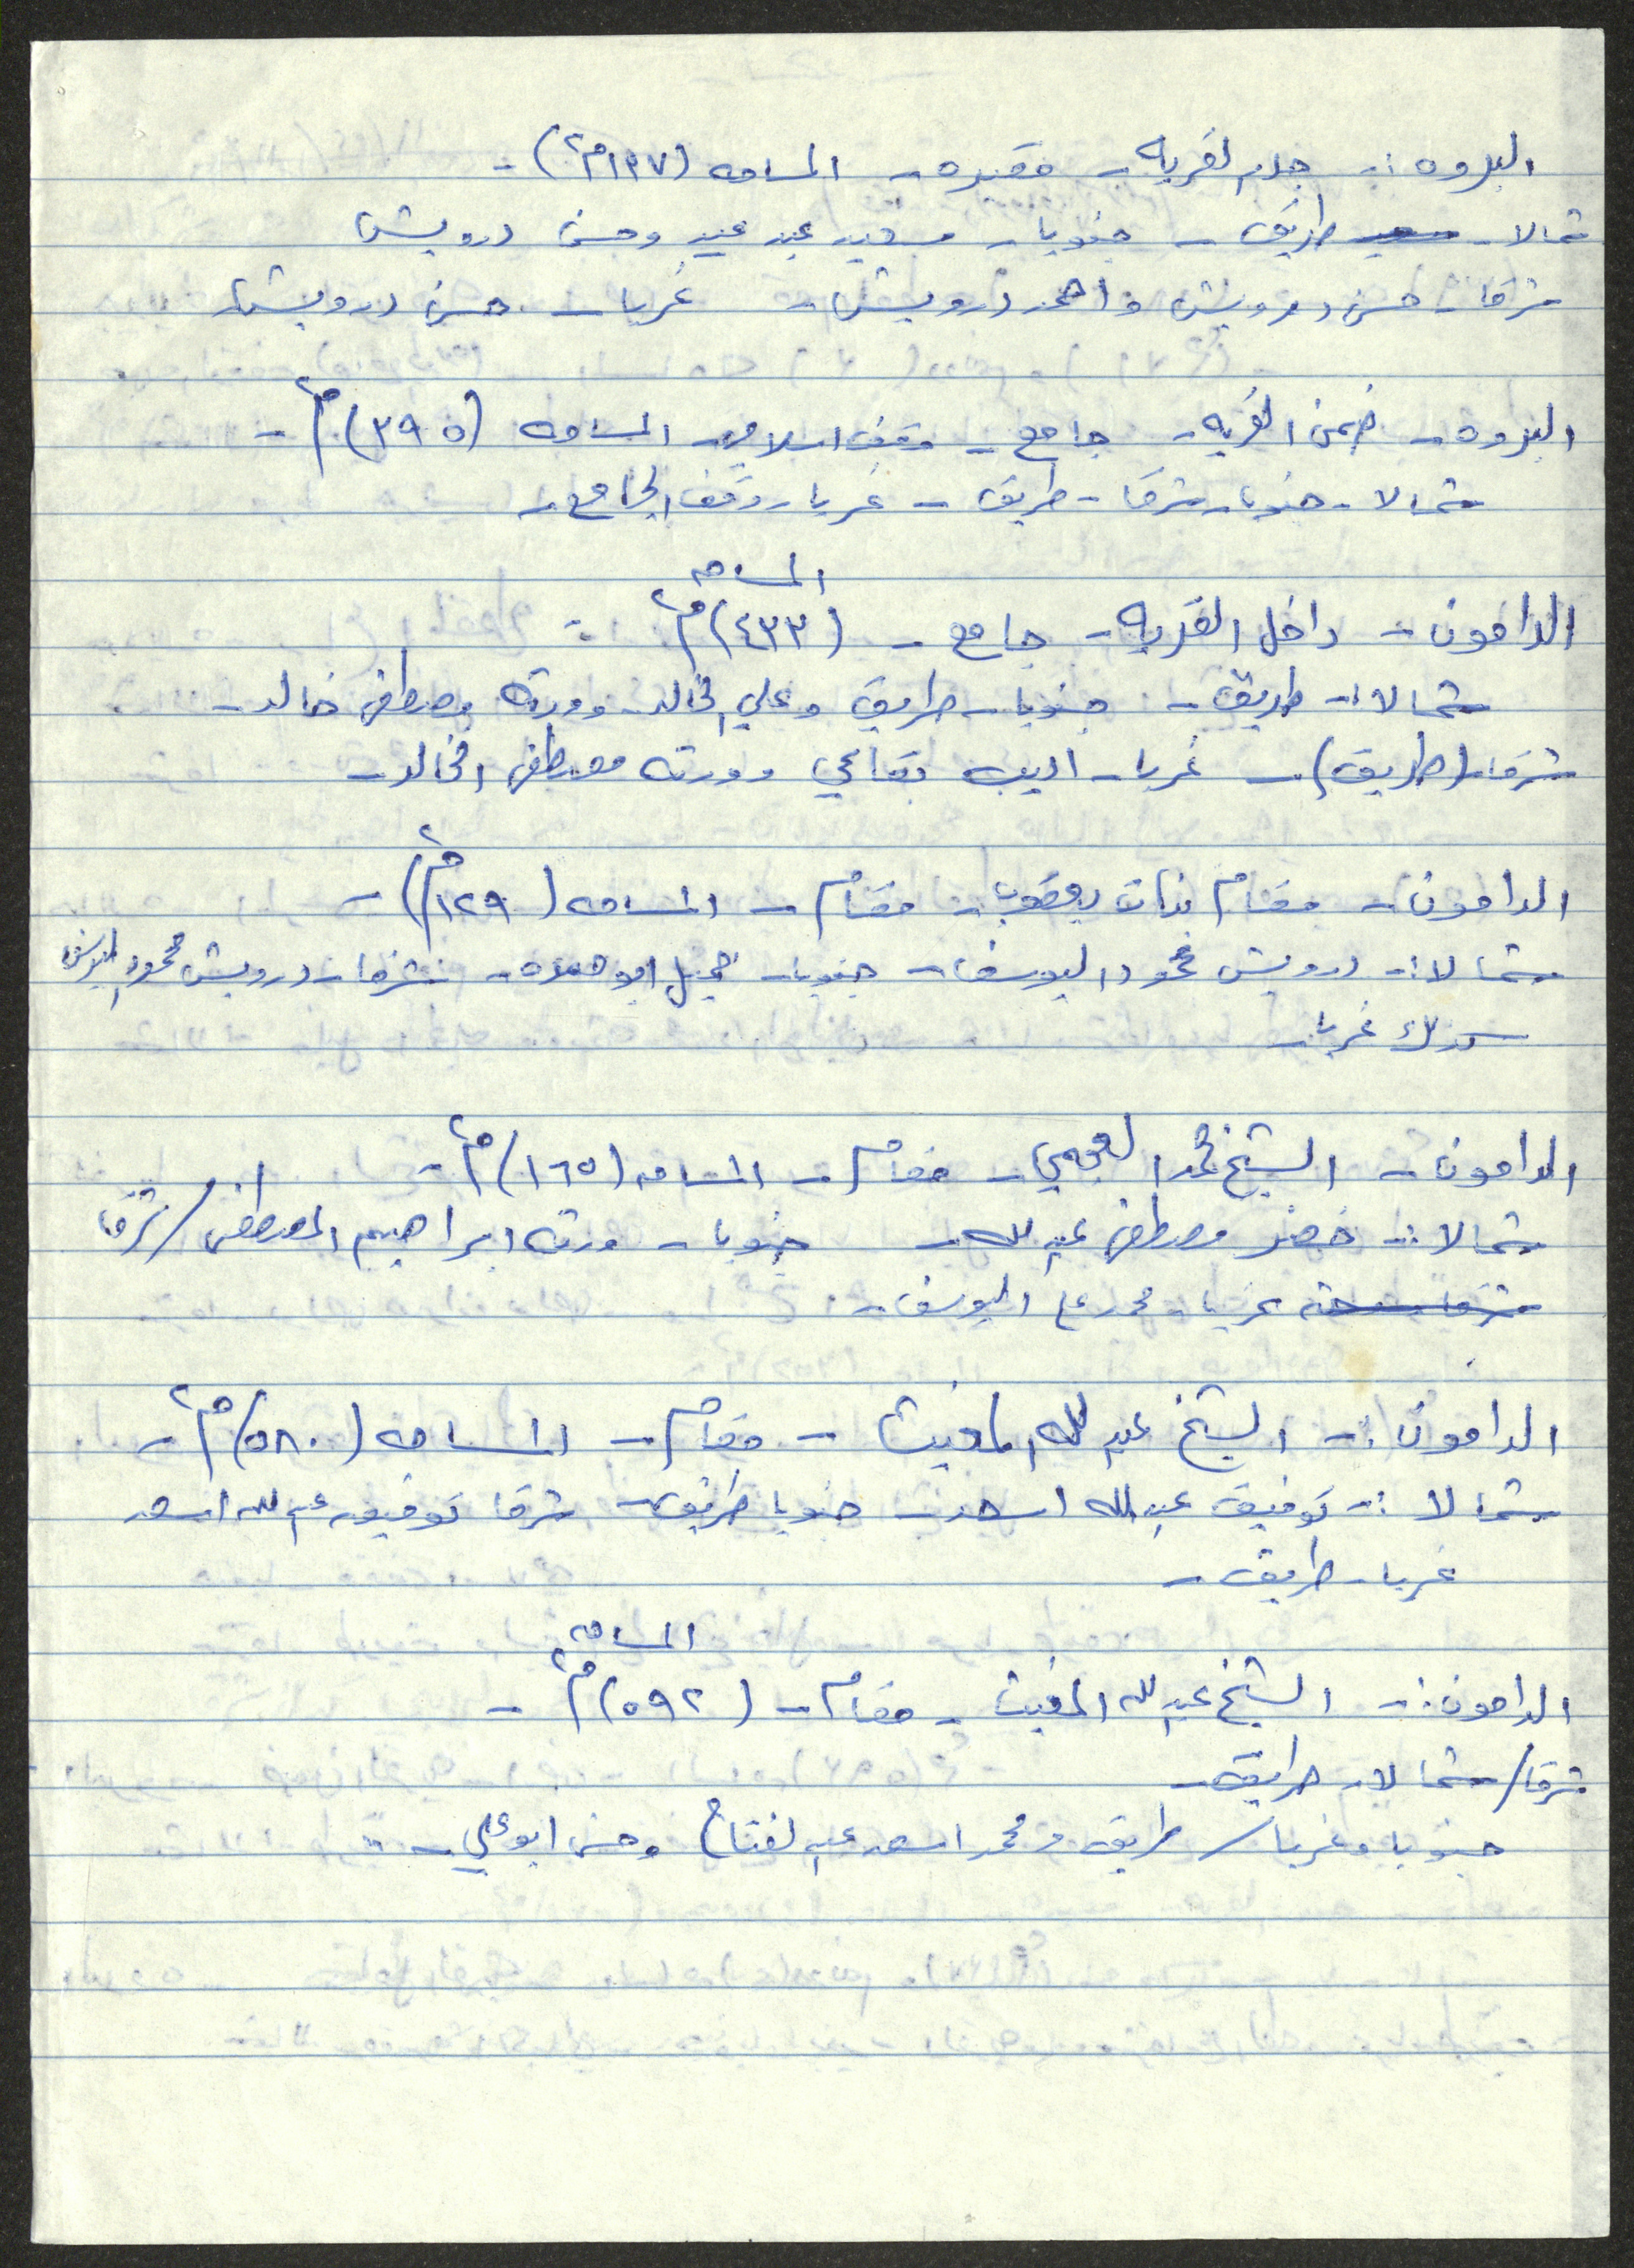 البروه :- جدار القريه - مقبره - المساحه (١٣٧م٢) -
شمالا - طريق - جنوبا - سعيد عبد عيد وحسن درويش
شرقا - حسن درويش واحمد درويش - غربا - حسن درويش
البروه - ضمن القريه - جامع - وقف اسلامي - المساحه (٣٩٥)م٢ -
شمالا - جنوبا - شرقا - طريق - غربا - وقف الجامع -
المساحه
الدامون - داخل القريه - جامع - (٤٣٣)م٢ -
شمالا :- طريق - جنوبا - طريق وعلي الخالد وورثه مصطفى خالد -
شرقا - (طريق) - غربا - اديب بقاعي وورثه مصطفى الخالد -
الدامون - مقام بنات يعقوب - مقام - المساحه (١٢٩م٢) -
شمالا :- درويش محمود اليوسف - جنوبا - جميل ابو - شرقا - درويش محمود اليوسف
كذلك غربا -
الدامون - الشيخ محمد العجمي - مقام - المساحه (١٦٥)م٢ -
شمالا :- خضر مصطفى عبد الله - جنوبا - ورثه ابراهيم المصطفى / شرقا
غربا - محمد علي اليوسف -
الدامون :- الشيخ عبد الله المغيث - مقام - المساحه (٥٨٠)م٢ -
شمالا :- توفيق عبد الله اسعد - جنوبا طريق - شرقا توفيق عبد الله اسعد
غربا - طريق -
المساحه
الدامون :- الشيخ عبد الله المغيث - مقام - (٥٩٢)م٢ -
شرقا / شمالا - طريق -
جنوبا وغربا / طريق ومحمد اسعد عبد الفتاح وحسن ابو علي -